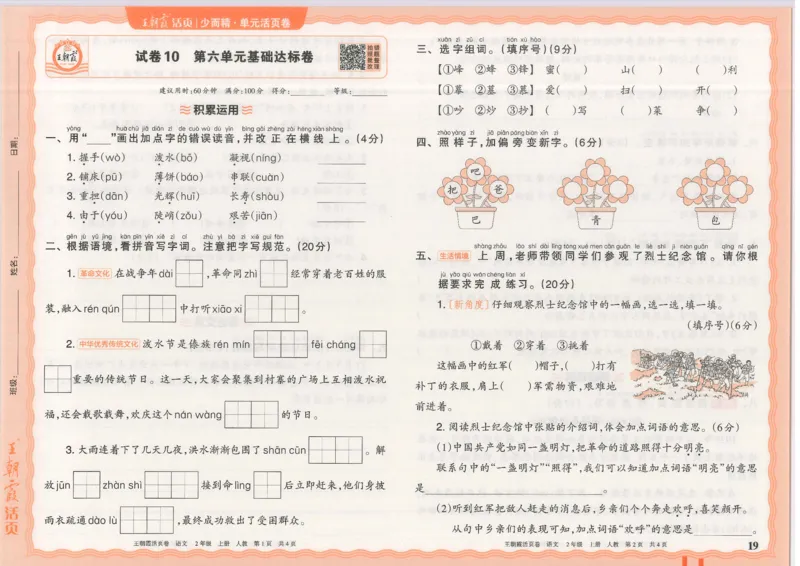 王朝霞 活页 | 少而精·单元活页卷
王朝霞
试卷10 第六单元基础达标卷
建议用时:60分钟 满分:100分 得分:______ 等级:______
积累运用
yòng huà chū jiā diǎn zì de cuò wù dú yīn bìng gǎi zhèng zài héng xiàn shàng
一、用“____”画出加点字的错误读音,并改正在横线上。(4分)
1. 握手(wò) 泼水(bō) 凝视(níng) ______
2. 铺床(pū) 薄饼(báo) 串联(cuàn) ______
3. 重担(dān) 光辉(huī) 长寿(shòu) ______
4. 由于(yóu) 陡峭(zǒu) 艰苦(jiān) ______
gēn jù yǔ jìng kàn pīn yīn xiě zì cí zhù yì bǎ zì xiě guī fàn
二、根据语境,看拼音写字词。注意把字写规范。(20分)
1. 革命文化 在战争年dài ,革命同zhì 经常穿着老百姓的服
装,融入rén qún 中打听xiāo xi 。
2. 中华优秀传统文化 泼水节是傣族rén mín fēi cháng
重要的传统节日。这一天,大家会聚集到村寨的广场上互相泼水祝
福,还会载歌载舞,欢庆这个nán wàng 的节日。
3. 大雨连着下了几天几夜,洪水渐渐包围了shān cūn 。解
放jūn zhàn shì 接到命lìng 后立即赶来,他们身披
雨衣疏通dào lù ,最终成功救出了受困群众。
王朝霞活页卷 语文 2年级 上册 人教 第1页 共4页
xuǎn zì zǔ cí tián xù hào
三、选字组词。(填序号)(9分)
【①峰 ②蜂 ③锋】 蜜( ) 山( ) ( )利
【①幕 ②墓 ③慕】 爱( ) 扫( ) 开( )
【①吵 ②炒 ③抄】 ( )写 ( )菜 争( )
zhào yàng zi jiā piān páng biàn xīn zì
四、照样子,加偏旁变新字。(6分)
吧
把 爸
巴 青 包
shàng zhōu lǎo shī dài lǐng tóng xué men cān guān le liè shì jì niàn guǎn qǐng nǐ gēn
五、生活情境 上周,老师带领同学们参观了烈士纪念馆。请你根
jù yāo qiú wán chéng liàn xí
据要求完成练习。(20分)
1. [新角度] 仔细观察烈士纪念馆中的一幅画,选一选,填一填。
(填序号)(6分)
①戴着 ②穿着 ③挑着
这幅画中的红军( )帽子,( )打有
补丁的衣服,肩上( )军需物资,艰难地
前进着。
2. 阅读烈士纪念馆中张贴的介绍词,体会加点词语的意思。(6分)
(1)中国共产党如同一盏明灯,把革命的道路照得十分明亮。
联系句中的“一盏明灯”“照得”,我们可以知道加点词语“明亮”的意思
是______。
(2)听到红军把敌人赶走的消息后,乡亲们个个奔走欢呼,喜笑颜开。
从句中乡亲们的表现可知,加点词语“欢呼”的意思是______。
王朝霞活页卷 语文 2年级 上册 人教 第2页 共4页
19
日期:
姓名:
班级:
王朝霞活页